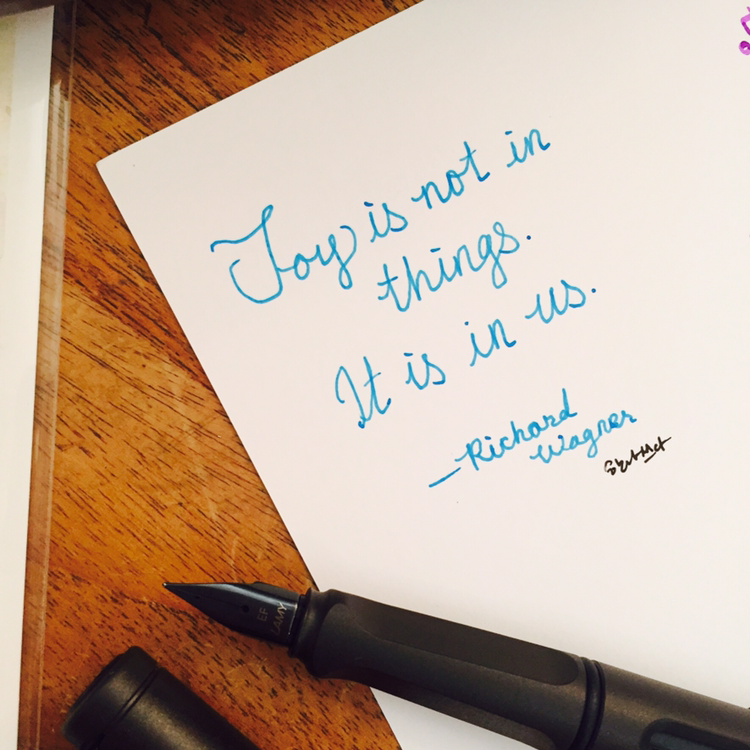 Joy is not in
things.
It is in us.
—Richard
Wagner
EF
LAMY